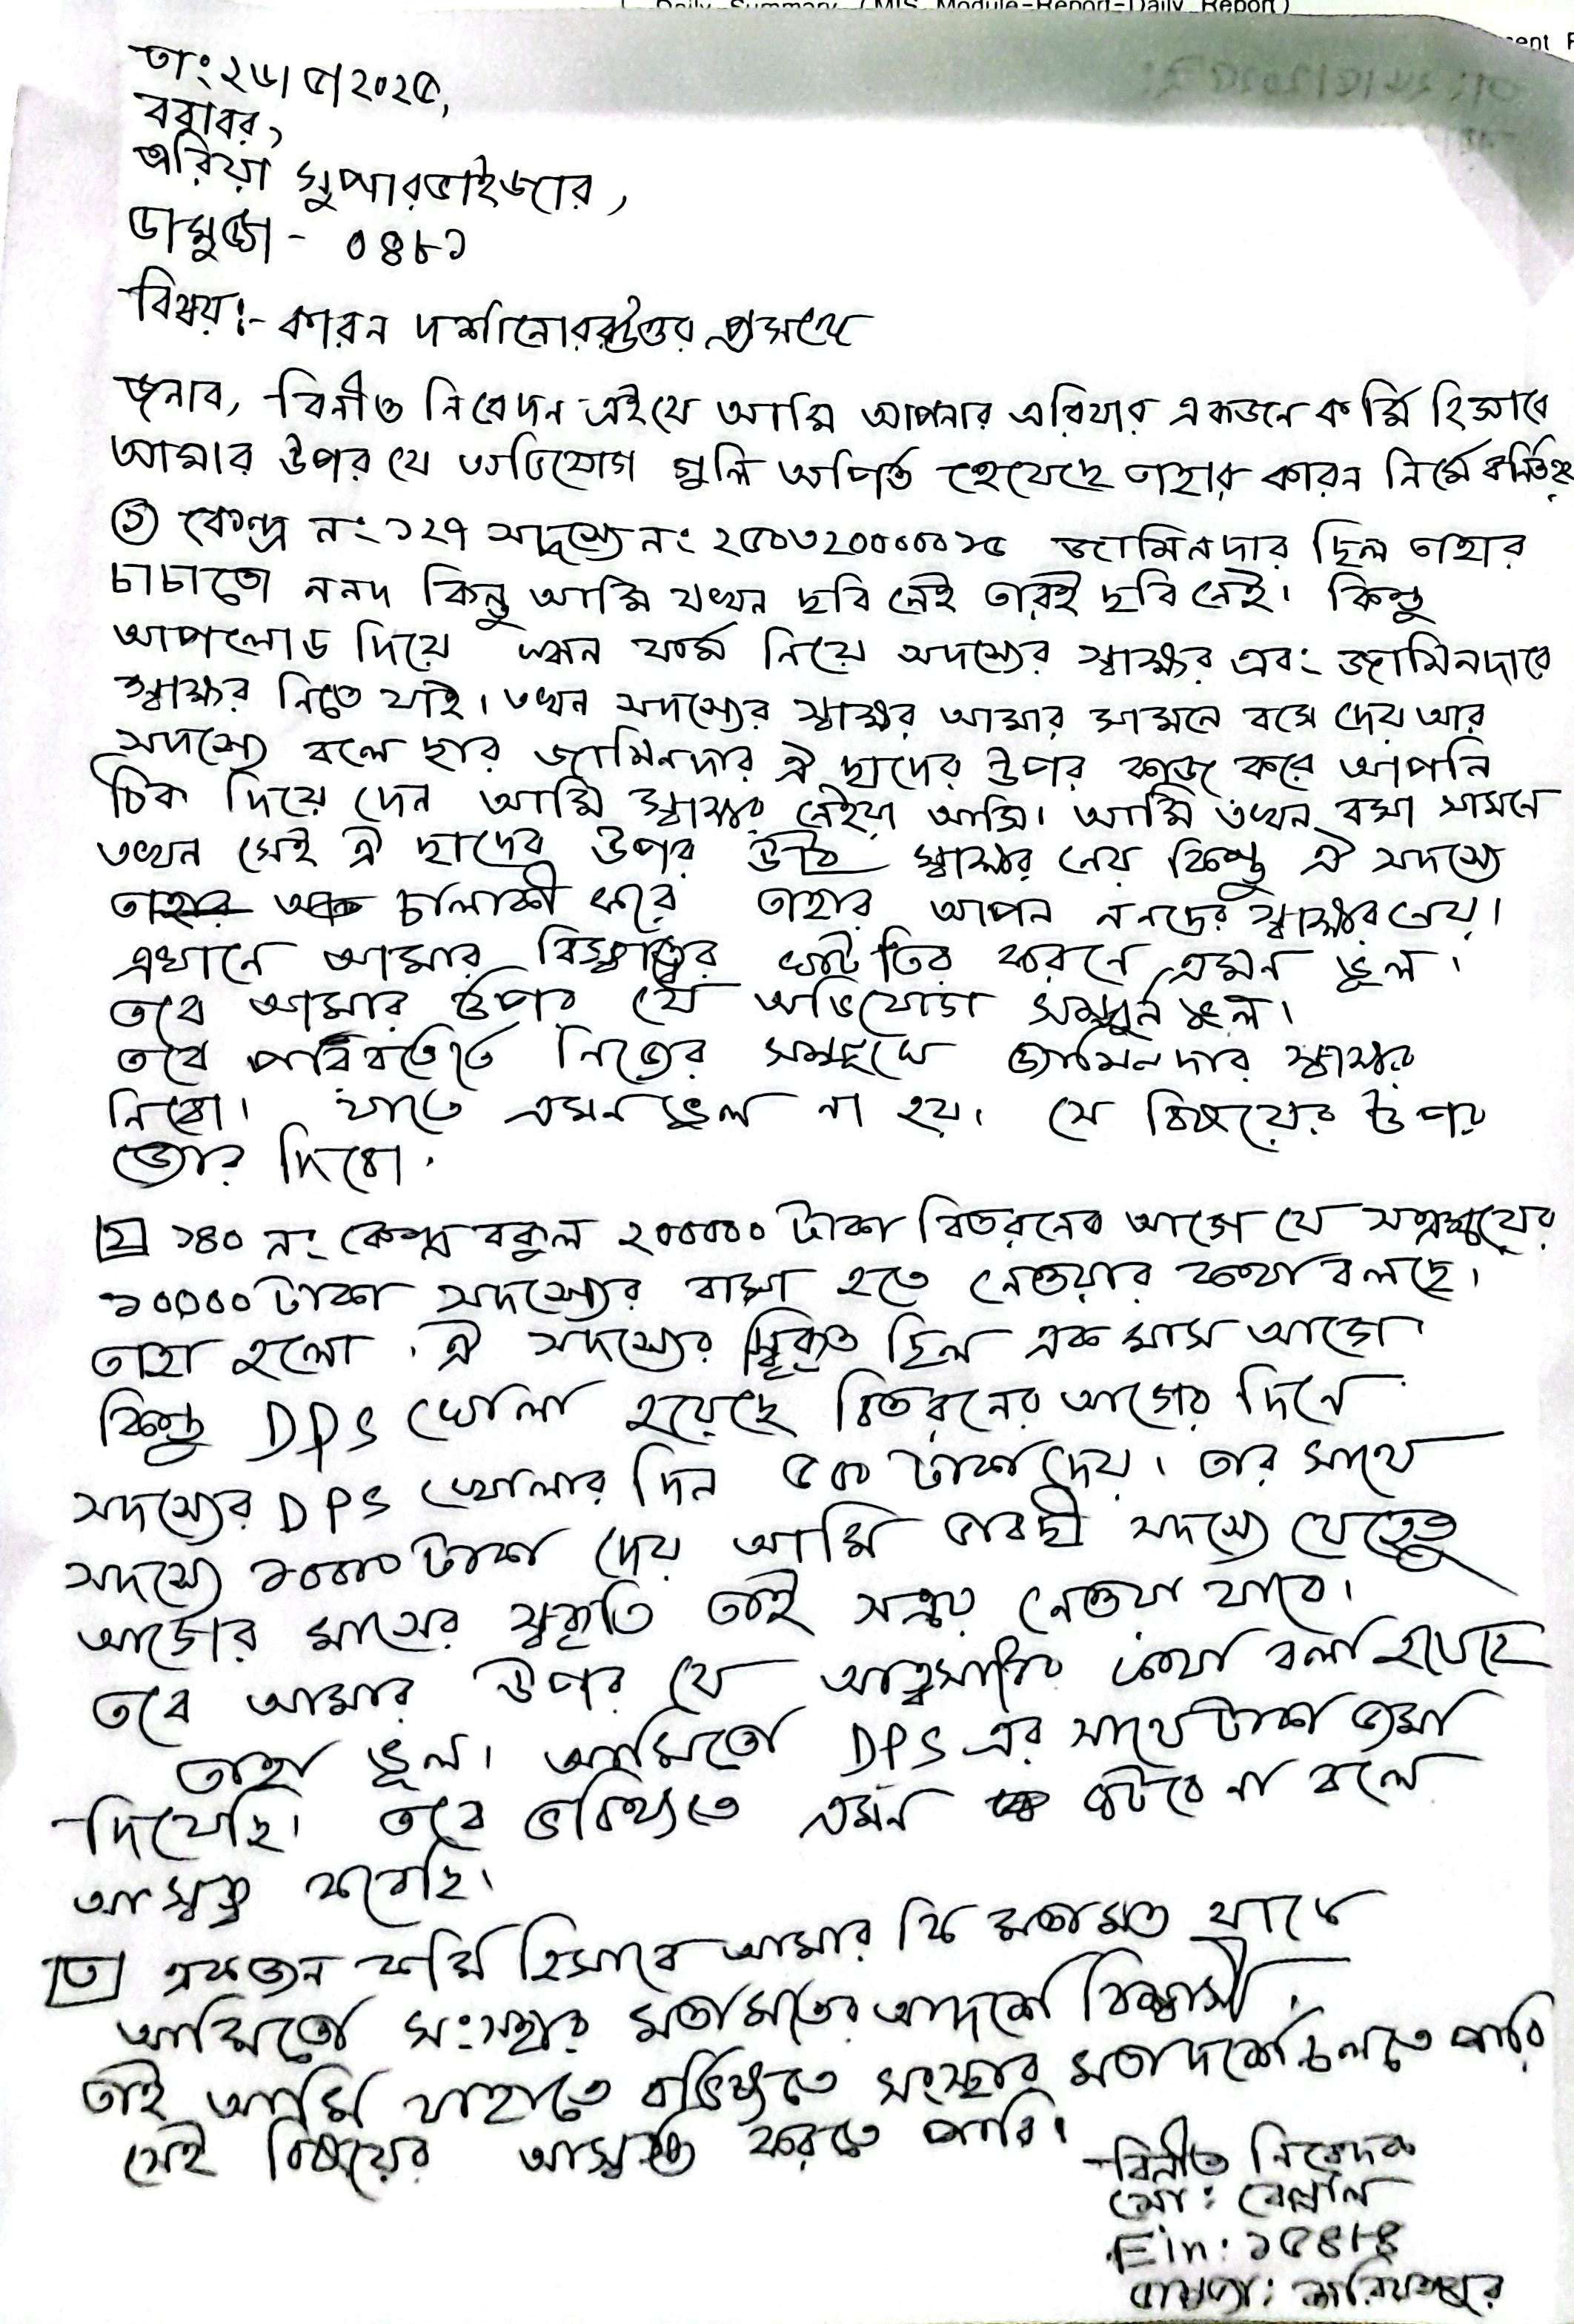 Daily Summary (MIS Module-Report-Daily Report)
তাং ২৬/৫/২০২৫,
বরাবর,
এরিয়া সুপারভাইজার,
ডামুড্যা - ০৪৮১
বিষয়:- কারন দর্শানোর উত্তর প্রসঙ্গে
জনাব, বিনীত নিবেদন এইযে আমি আপনার এরিয়ার একজন কর্মি হিসাবে
আমার উপর যে অভিযোগ গুলি অর্পিত হয়েছে তাহার কারন নির্মে বর্নিত
① কেন্দ্র নং ১২৭ সদস্যে নং ২৫০৩২০০০০০১৫ জামিনদার ছিল তাহার
চাচাতো ননদ কিন্তু আমি যখন ছবি নেই তারই ছবি নেই। কিন্তু
আপলোড দিয়ে ঋন ফর্ম নিয়ে সদস্যের স্বাক্ষর এবং জামিনদারে
স্বাক্ষর নিতে যাই। তখন সদস্যের স্বাক্ষর আমার সামনে বসে দেয় আর
সদস্যে বলে ছার জামিনদার ঐ ছাদের উপর কাজ করে আপনি
ঠিক দিয়ে দেন আমি স্বাক্ষর নেইয়া আসি। আমি তখন বসা সামনে
তখন সেই ঐ ছাদের উপর উঠি স্বাক্ষর নেয় কিন্তু ঐ সদস্যে
তাহার চালাকী করে তাহার আপন ননদের স্বাক্ষর নেয়।
এখানে আমার বিশ্বাস্তের ঘাটতির কারনে এমন ভুল।
তবে আমার উপর যে অভিযোগ সম্পূর্ন ভুল।
তবে পরিবর্তেতে নিজের সম্মুখে জামিনদার স্বাক্ষর
নিবো। যাতে এমন ভুল না হয়। সে বিষয়ের উপর
জোর দিবো।
২ ১৪০ নং কেন্দ্র বকুল ২০০০০০ টাকা বিতরনের আগে যে সঞ্চয়ের
১০০০০ টাকা সদস্যের বাসা হতে নেওয়ার কথা বলছে।
তাহা হলো। ঐ সদস্যের স্বিকৃত ছিল এক মাস আগে
কিন্তু DPS খোলা হয়েছে বিতরনের আগের দিনে
সদস্যের DPS খোলার দিন ৫০০ টাকা দেয়। তার সাথে
সদস্যে ১০০০০ টাকা দেয় আমি ভাবছী সদস্যে যেহেতু
আগের মাসের স্বকৃতি তাই সঞ্চয় নেওয়া যাবে।
তবে আমার উপর যে আত্বসাতের কথা বলা হয়েছে
তাহা ভুল। আমিতো DPS এর সাথে টাকা জমা
দিয়েছি। তবে ভবিষ্যতে এমন ঘটবে না বলে
আস্বস্ত করেছি।
৩ একজন কর্মি হিসাবে আমার কি মতামত থাকে
আমিতো সংস্থার মতামতের আদর্শে বিশ্বাসী।
তাই আমি যাহাতে ভবিষ্যতে সংস্থার মতাদর্শে চলতে পারি
সেই বিষয়ের আস্বস্ত করতে পারি।
বিনীত নিবেদক
মো: বেল্লাল
Ein: ১৫৪৮৪